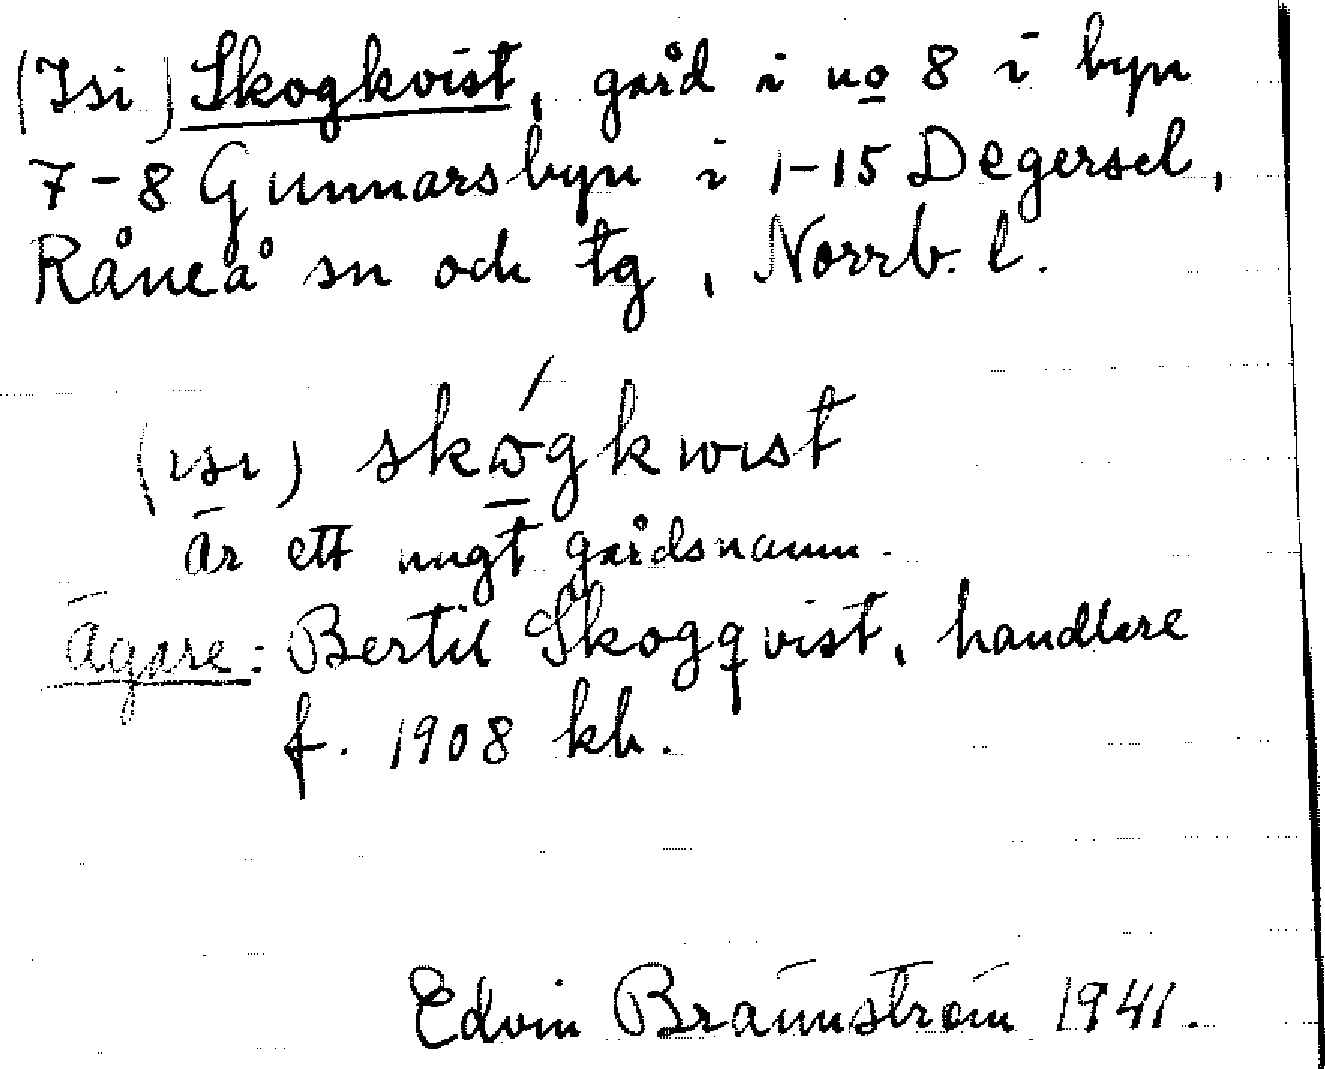 (Isi) Skogkvist, gård i no 8 i byn
7-8 Gunnarsbyn i 1-15 Degersel,
Råneå sn och tg, Norrb. l.
(ısı) skógkwıst
är ett nngt gårdsnamn.
Ägare: Bertil Skogqvist, handlare
f. 1908 kh.
Edvin Brännström 1941.